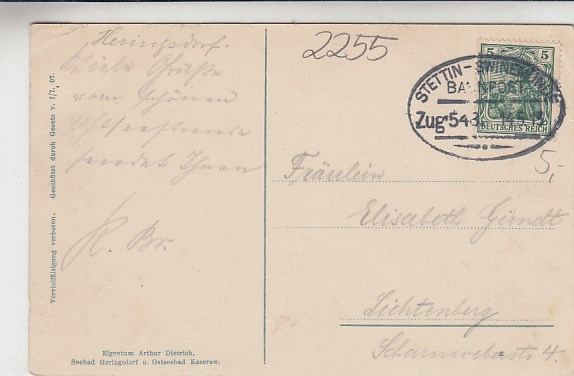 2255
5 5
DEUTSCHES REICH
STETTIN - SWINEMÜNDE
BAHNPOST
Zug 543
5,-
Heringsdorf.
Viele Grüße
vom schönen
Ostseestrande
sendet Ihnen
K. Br.
Fräulein
Elisabeth Girndt
Lichtenberg
Scharnweberstr 4.
Vervielfältigung verboten. Geschützt durch Gesetz v. 1/7. 07.
Eigentum Arthur Dietrich,
Seebad Heringsdorf u. Ostseebad Koserow.